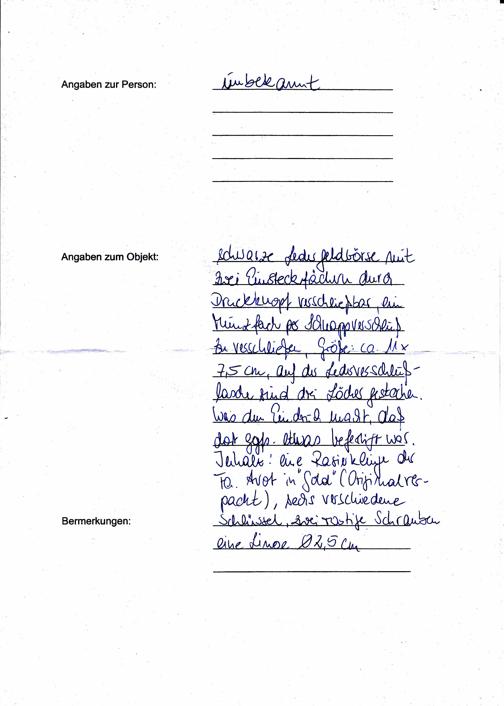 Angaben zur Person:
unbekannt
Angaben zum Objekt:
schwarze Ledergeldbörse mit
zwei Einsteckfächern durch
Druckknopf verschließbar, ein
Münzfach per Schnappverschluß
zu verschließen, Größe: ca. 11x
7,5 cm, auf der Lederverschluß-
lasche sind drei Löcher gestochen.
Was den Eindruck macht, daß
dort ggf. etwas befestigt war.
Inhalt: eine Rasierklinge der
Fa. in "Gold" (Originalver-
packt), sechs verschiedene
Bermerkungen:
Schlüssel, zwei rostige Schrauben
eine Linse Ø2,5 cm